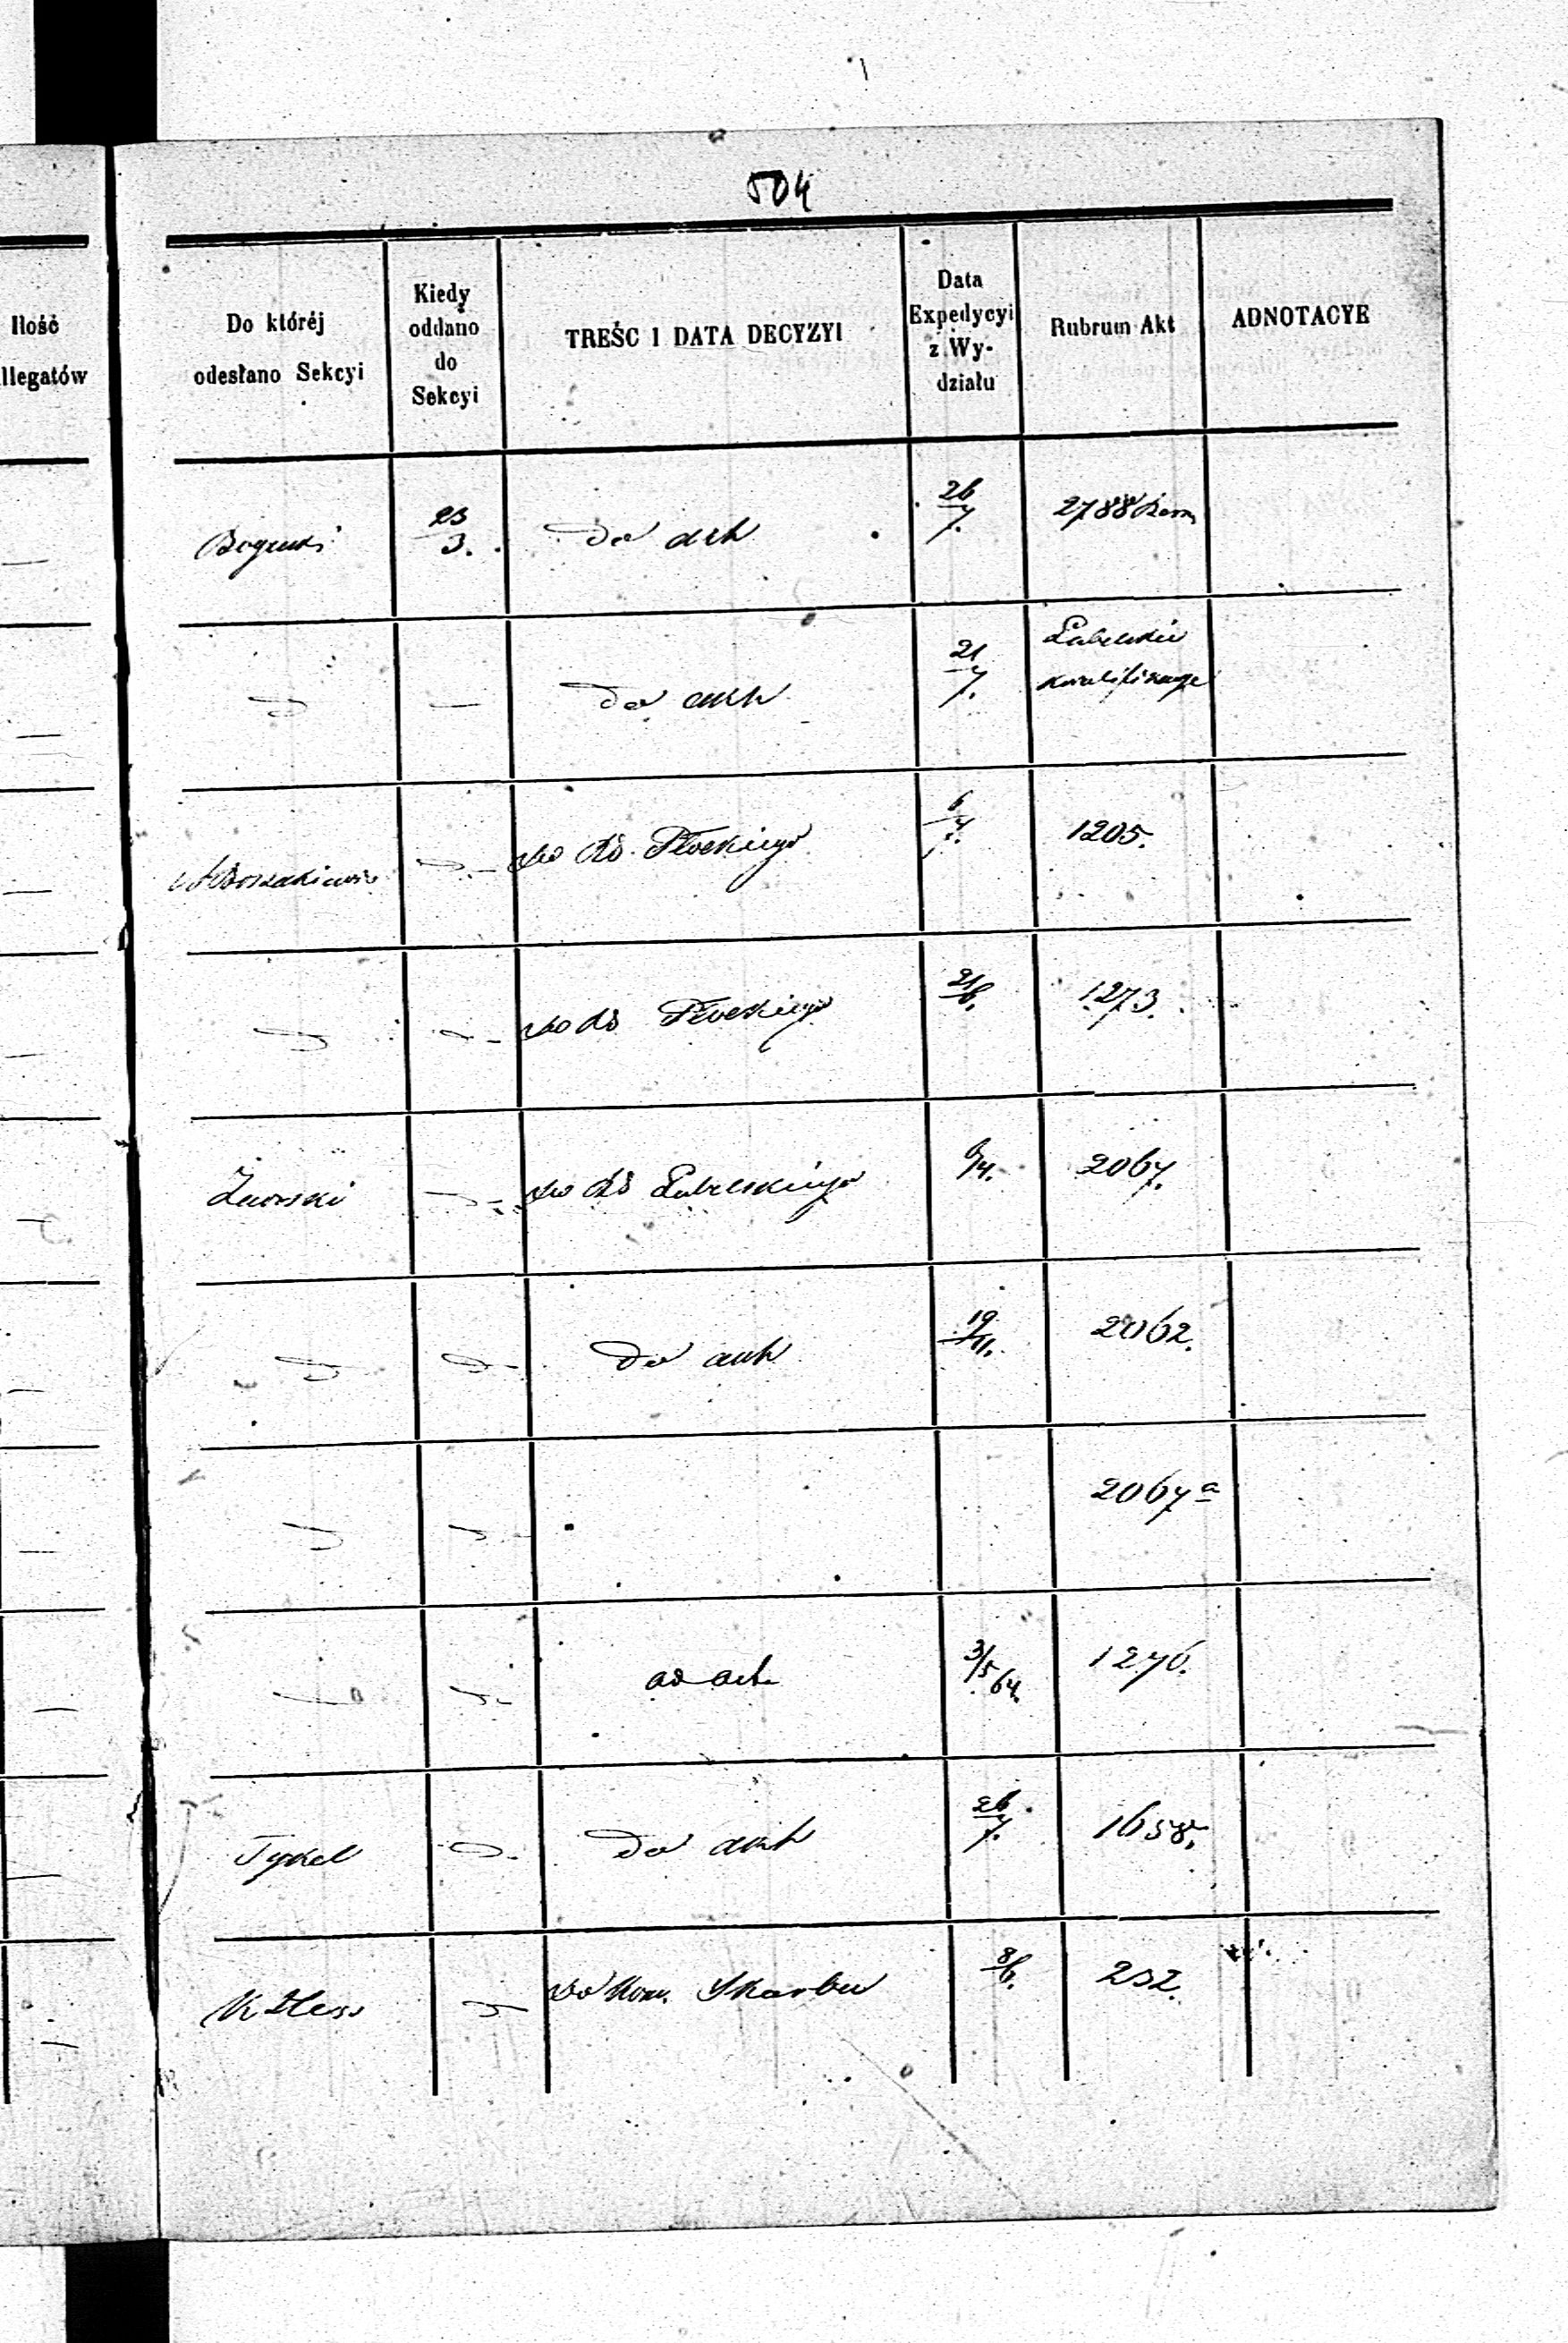 504
Ilość
llegatów
Do któréj
odesłano Sekcyi
Kiedy
oddano
do
Sekcyi
TREŚC I DATA DECYZYI
Data
Expedycyi
z Wy-
działu
Rubrum Akt
ADNOTACYE
23/3. do akt 26/7. 2788
do akt 21/7. Lubelskie
do Płockiego 6/7. 1205.
do Płockiego 21/6. 1273.
do Lubelskiego 6/4. 2067.
do akt 19/11. 2062.
2067 a
ad acta 3/5 64. 1276.
Tykel do akt 26/7. 1658.
Hess do Kom. Skarbu 8/6. 232.